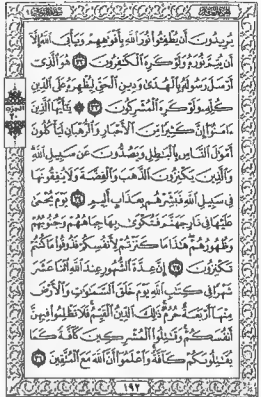 يُرِيدُونَ أَن يُطْفِـُٔوا۟ نُورَ ٱللَّهِ بِأَفْوَٰهِهِمْ وَيَأْبَى ٱللَّهُ إِلَّآ
أَن يُتِمَّ نُورَهُۥ وَلَوْ كَرِهَ ٱلْكَٰفِرُونَ ٣٢ هُوَ ٱلَّذِىٓ
أَرْسَلَ رَسُولَهُۥ بِٱلْهُدَىٰ وَدِينِ ٱلْحَقِّ لِيُظْهِرَهُۥ عَلَى ٱلدِّينِ
كُلِّهِۦ وَلَوْ كَرِهَ ٱلْمُشْرِكُونَ ٣٣ يَٰٓأَيُّهَا ٱلَّذِينَ
ءَامَنُوٓا۟ إِنَّ كَثِيرًا مِّنَ ٱلْأَحْبَارِ وَٱلرُّهْبَانِ لَيَأْكُلُونَ
أَمْوَٰلَ ٱلنَّاسِ بِٱلْبَٰطِلِ وَيَصُدُّونَ عَن سَبِيلِ ٱللَّهِ
وَٱلَّذِينَ يَكْنِزُونَ ٱلذَّهَبَ وَٱلْفِضَّةَ وَلَا يُنفِقُونَهَا
فِى سَبِيلِ ٱللَّهِ فَبَشِّرْهُم بِعَذَابٍ أَلِيمٍ ٣٤ يَوْمَ يُحْمَىٰ
عَلَيْهَا فِى نَارِ جَهَنَّمَ فَتُكْوَىٰ بِهَا جِبَاهُهُمْ وَجُنُوبُهُمْ
وَظُهُورُهُمْ هَٰذَا مَا كَنَزْتُمْ لِأَنفُسِكُمْ فَذُوقُوا۟ مَا كُنتُمْ
تَكْنِزُونَ ٣٥ إِنَّ عِدَّةَ ٱلشُّهُورِ عِندَ ٱللَّهِ ٱثْنَا عَشَرَ
شَهْرًا فِى كِتَٰبِ ٱللَّهِ يَوْمَ خَلَقَ ٱلسَّمَٰوَٰتِ وَٱلْأَرْضَ
مِنْهَآ أَرْبَعَةٌ حُرُمٌ ذَٰلِكَ ٱلدِّينُ ٱلْقَيِّمُ فَلَا تَظْلِمُوا۟ فِيهِنَّ
أَنفُسَكُمْ وَقَٰتِلُوا۟ ٱلْمُشْرِكِينَ كَآفَّةً كَمَا
يُقَٰتِلُونَكُمْ كَآفَّةً وَٱعْلَمُوٓا۟ أَنَّ ٱللَّهَ مَعَ ٱلْمُتَّقِينَ ٣٦
١٩٢